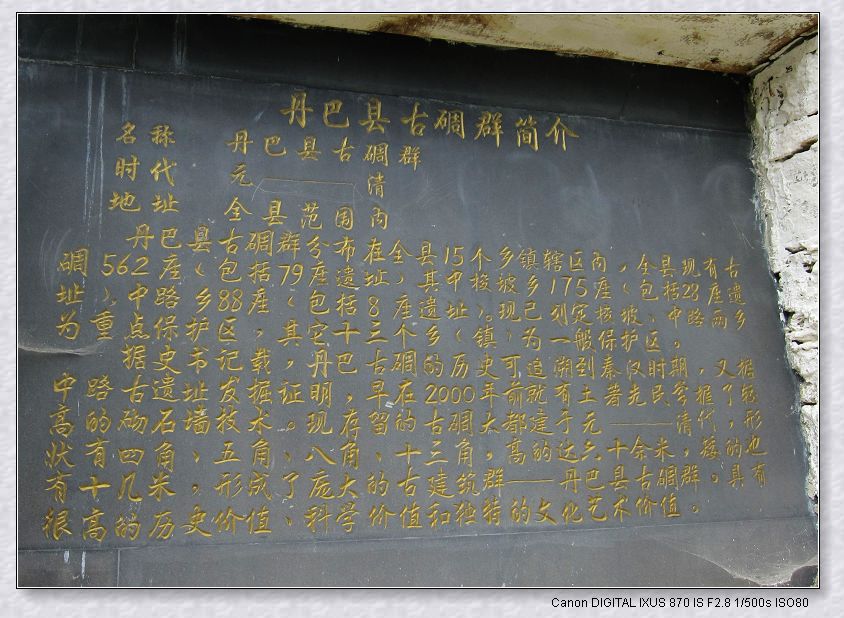 丹巴县古碉群简介
名称 丹巴县古碉群
时代 元———清
地址 全县范围内
丹巴县古碉群分布在全县15个乡镇辖区内,全县现有古
碉562座(包括79座遗址,其中梭坡乡175座(包括28座遗
址),中路乡88座(包括8座遗址)。现已列定梭坡、中路两乡
为重点保护区,其它十三个乡(镇)为一般保护区。
据史书记载,丹巴古碉的历史可追溯到秦汉时期,又据
中路古遗址发掘证明,早在2000年前就有土著先民掌握了较
高的砌石墙技术。现存留的古碉大都建于元———清代,形
状有四角、五角、八角、十三角,高的达六十余米,矮的也
有十几米,形成了庞大的古建筑群——丹巴县古碉群。具有
很高的历史价值、科学价值和独特的文化艺术价值。
Canon DIGITAL IXUS 870 IS F2.8 1/500s ISO80